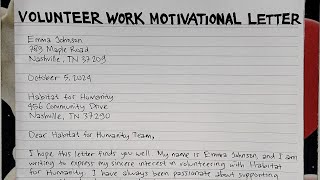 VOLUNTEER WORK MOTIVATIONAL LETTER
Emma Johnson
789 Maple Road
Nashville, TN 37209
October 5, 2024
Habitat for Humanity
456 Community Drive
Nashville, TN 37290
Dear Habitat for Humanity Team,
I hope this letter finds you well. My name is Emma Johnson, and I am
writing to express my sincere interest in volunteering with Habitat
for Humanity. I have always been passionate about supporting